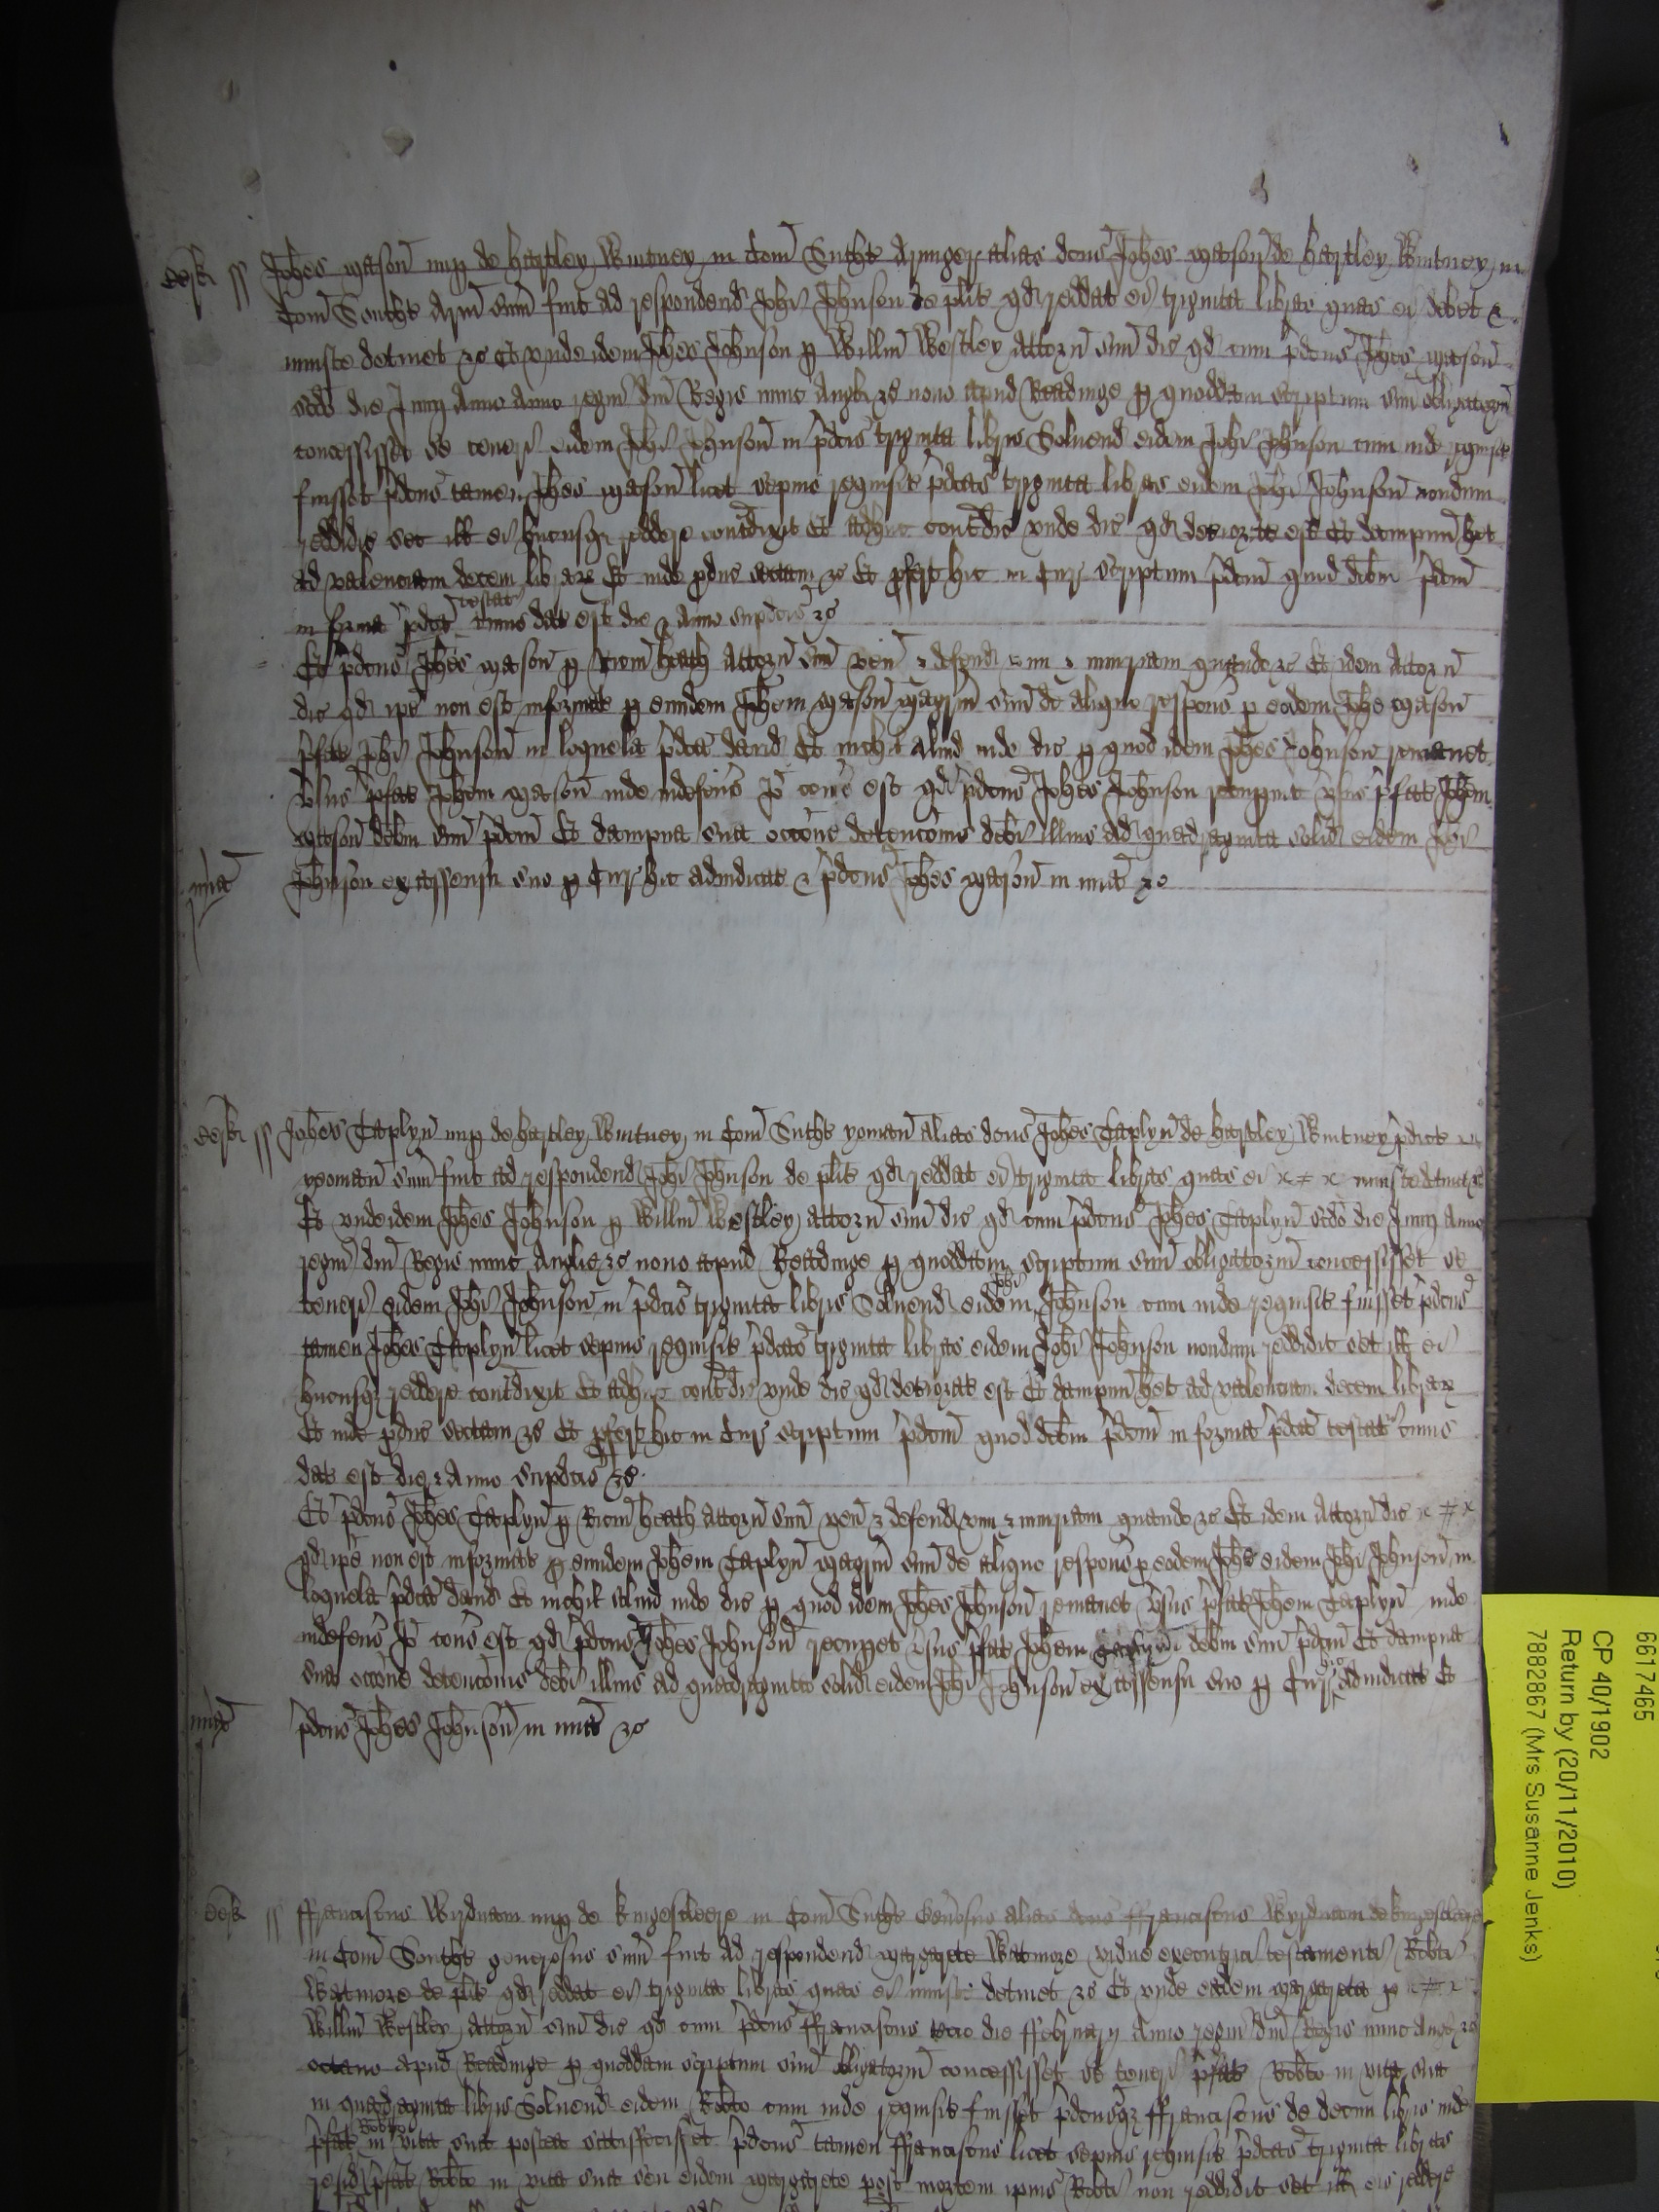 Berk ss Johes Mason nup de Hartley Wintney in Com Sutht Armiger alias dcus Johes Mason de Hartley Wintney in
Com Southt Arm sum fuit ad respondend Johi Johnson de plito qd reddat ei triginta libras quas ei debet &
iniuste detinet &c Et unde idem Johes Johnson p Willm Westley Attorn suu dic qd cum pdcus Johes Mason
scdo die Junij Anno Anno regni dni Regis nunc Angl &c nono apud Readinge p quoddam scriptum suu obligatoriu
concessisset se teneri eidem Johi Johnson in pdcis triginta libris Solvend eidem Johi Johnson cum inde requisit
fuisset pdcus tamen Johes Mason licet sepius requisit pdcas triginta libras eidem Johi Johnson nondum
reddidit set ill ei hucusq reddere contradixit Et adhuc contradic unde dic qd deteriorat est Et dampnu het
ad valenciam decem librar Et inde pduc sectam &c Et pfert hic in Cur scriptum pdcm quod debm pdcm
in forma pdca testat cuius dat est die & Anno supdcis &c
Et pdcus Johes Mason p Ricm Heath Attorn suu ven & defend vim & iniuriam quando &c Et idem Attorn
dic qd ipe non est informat p eundem Johem Mason Magrm suu de aliquo respons p eodem Johe Mason
pfat Johi Johnson in loquela pdca dand Et nichil aliud inde dic p quod idem Johes Johnson remanet
vsus pfat Johem Mason inde indefens Io cons est qd pdcus Johes Johnson recuperet vsus pfat Johem
Mason debm suu pdcm Et dampna sua occone detencois debi illius ad quadraginta solid eidem Johi
mia Johnson ex assensu suo p Cur hic adiudicat & pdcus Johes Mason in mia &c
Berk ss Johes Taplyn nup de Hartley Wintney in Com Sutht yoman alias dcus Johes Taplyn de Hartley Wintney pdict
yeoman sum fuit ad respondend Johi Johnson de plito qd reddat ei triginta libras quas ei iniuste detinet &c
Et unde idem Johes Johnson p Willm Westley attorn suu dic qd cum pdcus Johes Taplyn scdo die Junij Anno
regni dni Regis nunc Anglie &c nono apud Readinge p quoddam scriptum suu obligatoriu concessisset se
teneri eidem Johi Johnson in pdcis triginta libris Solvend eidem Johi Johnson cum inde requisit fuisset pdcus
tamen Johes Taplyn licet sepius requisit pdcas triginta libras eidem Johi Johnson nondum reddidit set ill ei
hucusq reddere contradixit Et adhuc contradic unde dic qd deteriorat est Et dampnu het ad valenciam decem librar
Et inde pduc sectam &c Et pfert hic in Cur scriptum pdcm quod debm pdcm in forma pdca testat cuius
dat est die & Anno supdcis &c
Et pdcus Johes Taplyn p Ricm Heath attorn suu ven & defend vim & iniuriam quando &c Et idem Attorn dic
qd ipe non est informat p eundem Johem Taplyn Magrm suu de aliquo respons p eodem Johe eidem Johi Johnson in
loquela pdca dand Et nichil aliud inde dic p quod idem Johes Johnson remanet vsus pfat Johem Taplyn inde
indefens Io cons est qd pdcus Johes Johnson recuperet vsus pfat Johem Taplyn debm suu pdcm Et dampna
sua occone detencois debi illius ad quadraginta solid eidem Johi Johnson ex assensu suo p Cur hic adiudicat Et
mia pdcus Johes Johnson in mia &c
Berk ss Franciscus Wyrdnam nup de Kingesclere in Com Sutht Generosus alias dcus Franciscus Wyrdnam de Kingesclere
in Com Southt generosus sum fuit ad respondend Margarete Watmore vidue executrici testamenti Robti
Watmore de plito qd reddat ei triginta libras quas ei iniuste detinet &c Et unde eadem Margareta p
Willm Westley attorn suu dic qd cum pdcus Franciscus die Februarij Anno regni dni Regis nunc Angl &c
octavo apud Readinge p quoddam scriptum suu obligatoriu concessisset se teneri pfat Robto in vita sua
in quadraginta libris Solvend eidem Robto cum inde requisit fuisset pdcusq Franciscus de decem libris inde
pfat Robto in vita sua postea satisfecisset pdcus tamen Franciscus licet sepius requisit pdcas triginta libras
resid pfat Robto in vita sua seu eidem Margarete post mortem ipius Robti non reddidit set ill eis reddere
6617465
CP 40/1902
Return by (20/11/2010)
7882867 (Mrs Susanne Jenks)